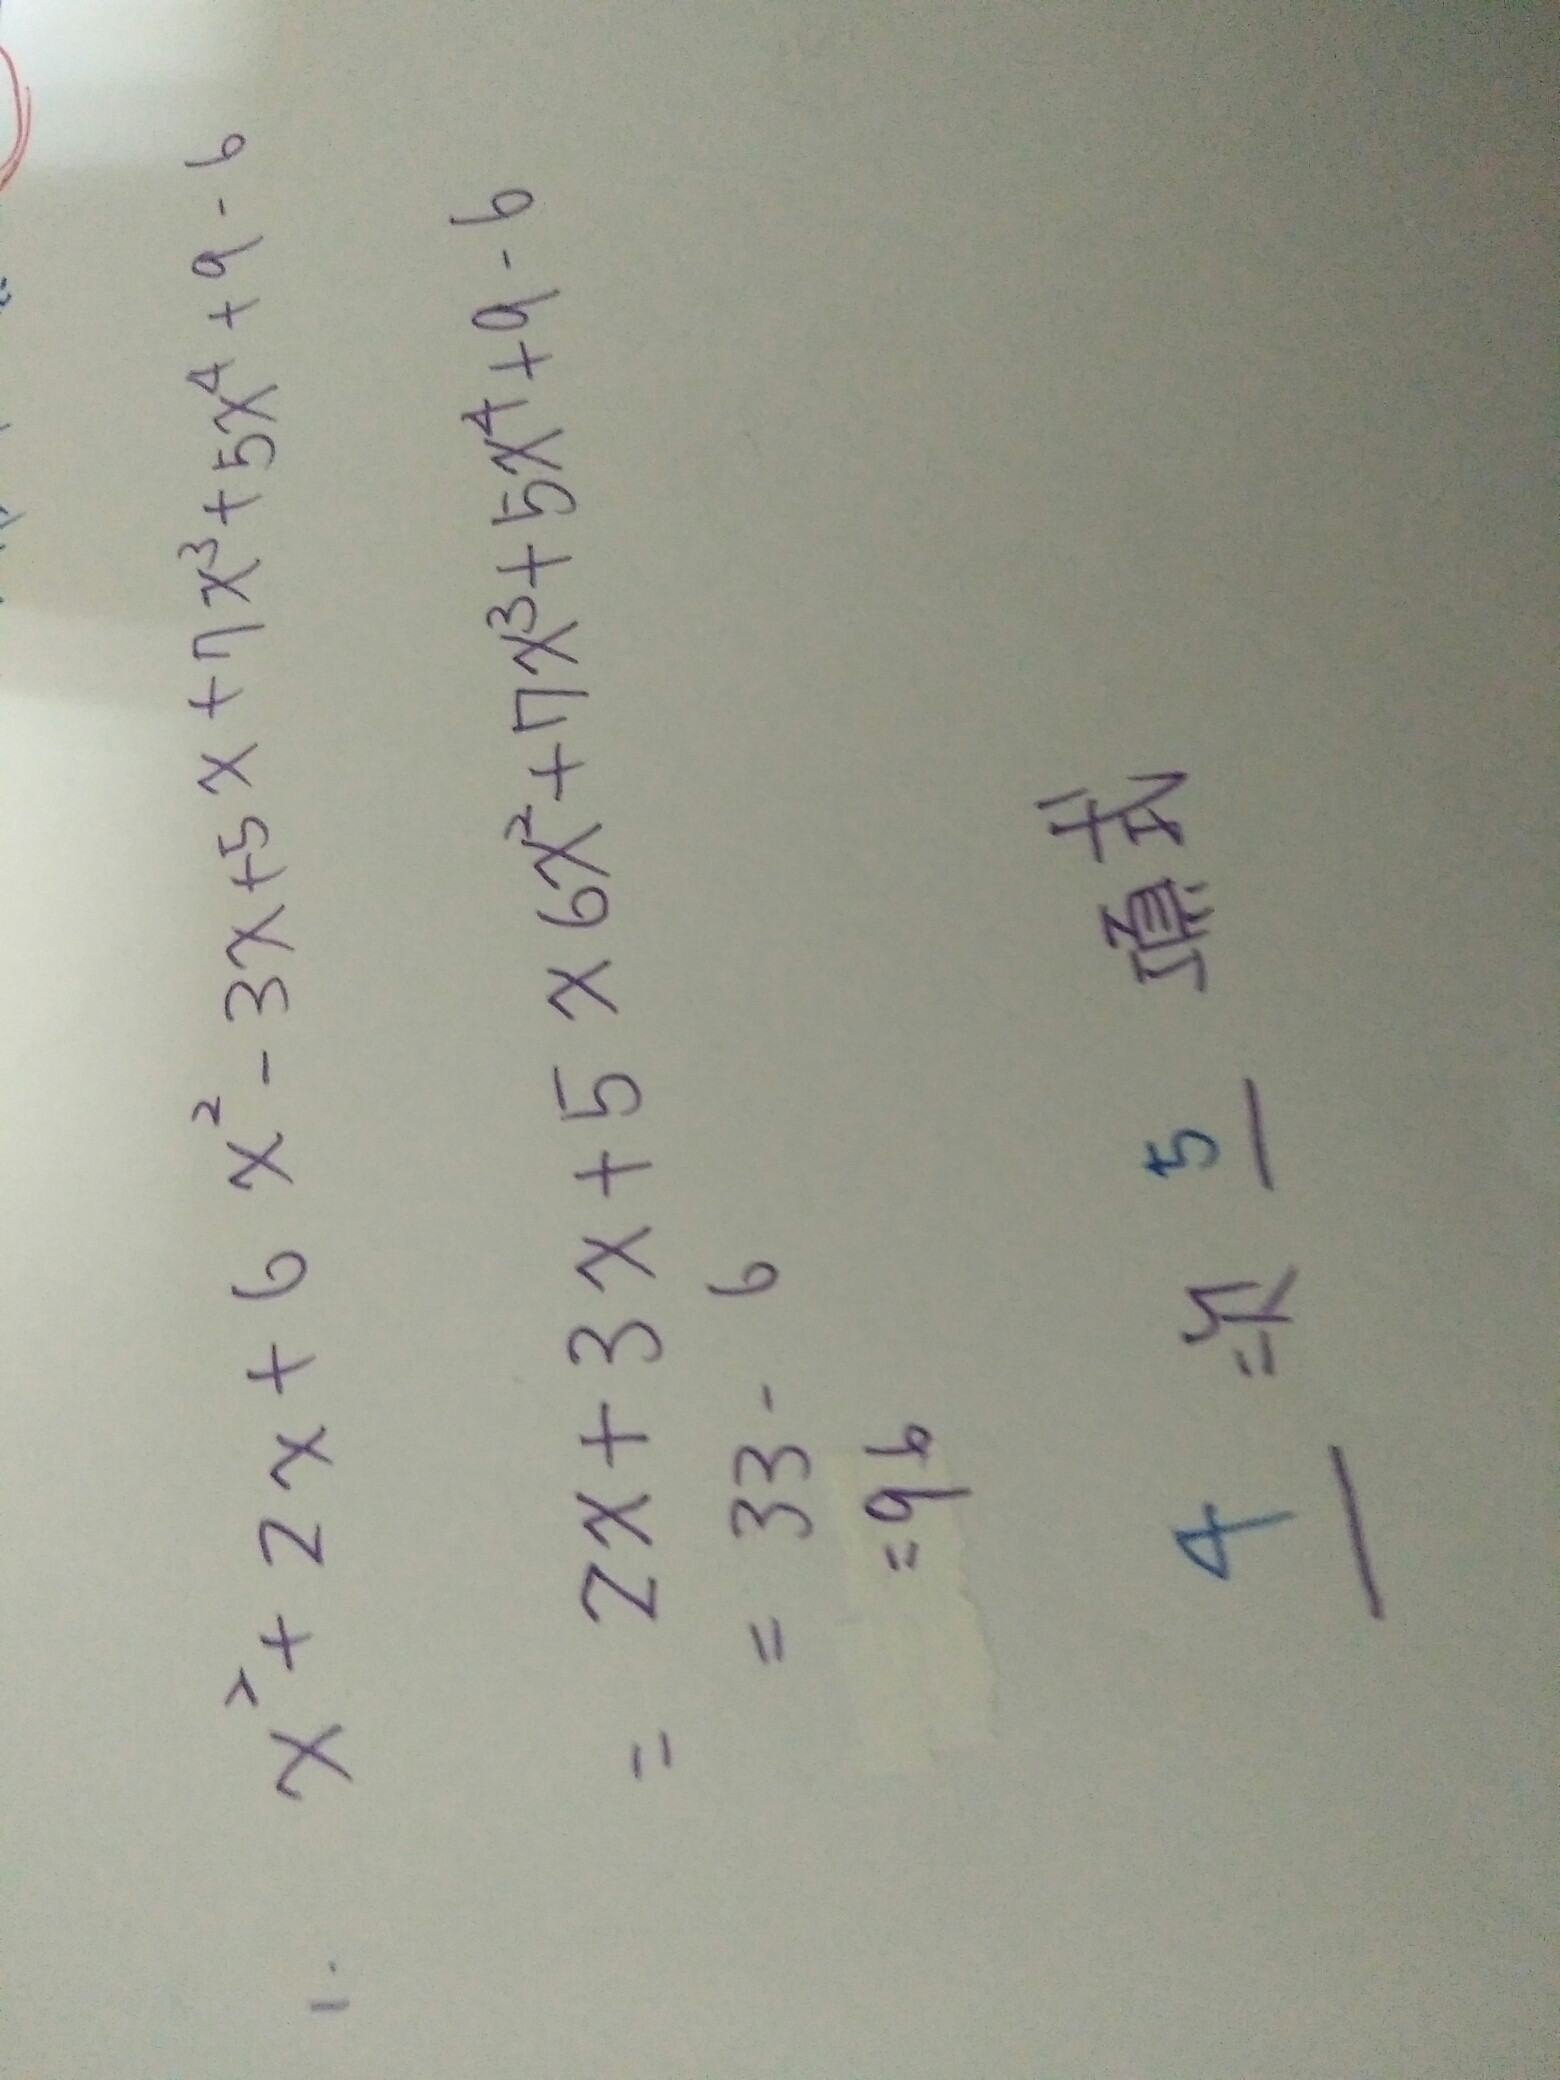 1. x² + 2x + 6x² - 3x + 5x + 7x³ + 5x⁴ + 9 - 6
= 2x + 3x + 5x 6x² + 7x³ + 5x⁴ + 9 - 6
= 33 - 6
= 96
4 次 5 項式